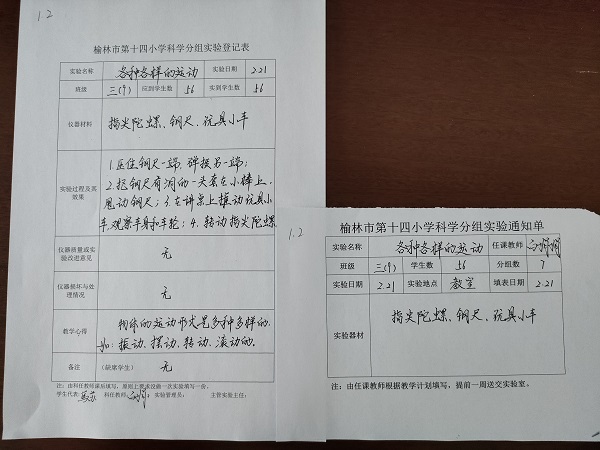 1.2
榆林市第十四小学科学分组实验登记表
实验名称 各种各样的运动 实验日期 2.21
班级 三(9) 应到学生数 56 实到学生数 56
仪器材料 指尖陀螺、钢尺、玩具小车
实验过程及其效果
1.压住钢尺一端,弹拨另一端;
2.把钢尺有洞的一头套在小棒上,
甩动钢尺;3.在讲桌上推动玩具小
车,观察车身和车轮;4.转动指尖陀螺
仪器质量或实验改进意见 无
仪器损坏与处理情况 无
教学心得 物体的运动形式是多种多样的.
如:振动、摆动、转动、滚动的.
备注 (缺席学生) 无
注:由科任教师课后填写,原则上要求没做一次实验填写一份。
学生代表: 科任教师: 实验管理员: 主管实验主任:
1.2
榆林市第十四小学科学分组实验通知单
实验名称 各种各样的运动 任课教师
班级 三(9) 学生数 56 分组数 7
实验日期 2.21 实验地点 教室 填表日期 2.21
实验器材 指尖陀螺、钢尺、玩具小车
注:由任课教师根据教学计划填写,提前一周送交实验室。